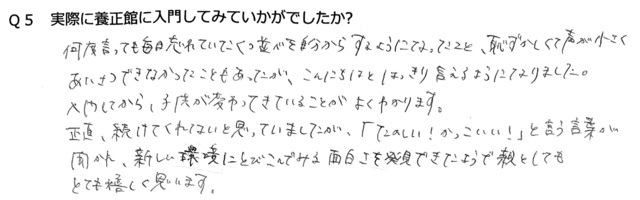 Q5 実際に養正館に入門してみていかがでしたか?
何度言っても毎日忘れていたくつ並べを自分からするようになったことと、恥ずかしくて声が小さく
あいさつできなかったこともあったが、こんにちはとはっきり言えるようになりました。
入門してから、子供が変わってきていることがよくわかります。
正直、続けてくれないと思っていましたが、「たのしい!かっこいい!」と言う言葉が
聞かれ、新しい環境にとびこんでみる面白さを発見できたようで親としても
とても嬉しく思います。